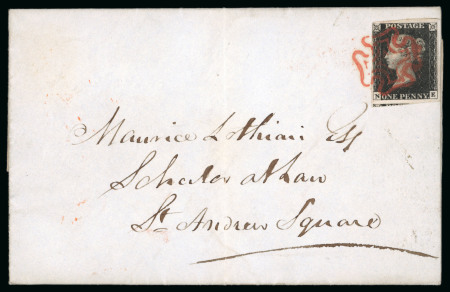 POSTAGE
ONE PENNY
Maurice Lothian Esq
Solicitor at Law
St. Andrew Square